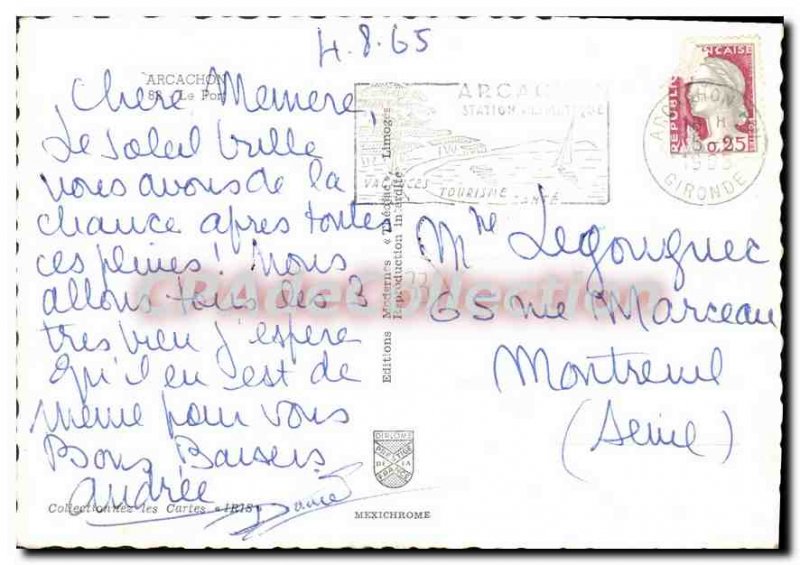 4.8.65
ARCACHON
88 - Le Port
Chere Memere,
Le soleil brille
nous avons de la
chance apres toutes
ces pluies! Nous
allons tous les 3
tres bien j'espere
qu'il en est de
meme pour vous
Bons Baisers
Andrée
Collectionnez les Cartes « IRIS »
Editions Modernes « Théojac », Limoges
Reproduction interdite
DIPLOME
PRESTIGE
FRANCE
MEXICHROME
ARCACHON
STATION CLIMATIQUE
VACANCES TOURISME SANTÉ
REPUBLIQUE FRANCAISE
0,25
ARCACHON
1965
GIRONDE
Mme Legouguec
65 rue Marceau
Montreuil
(Seine)
CPAdeCollection